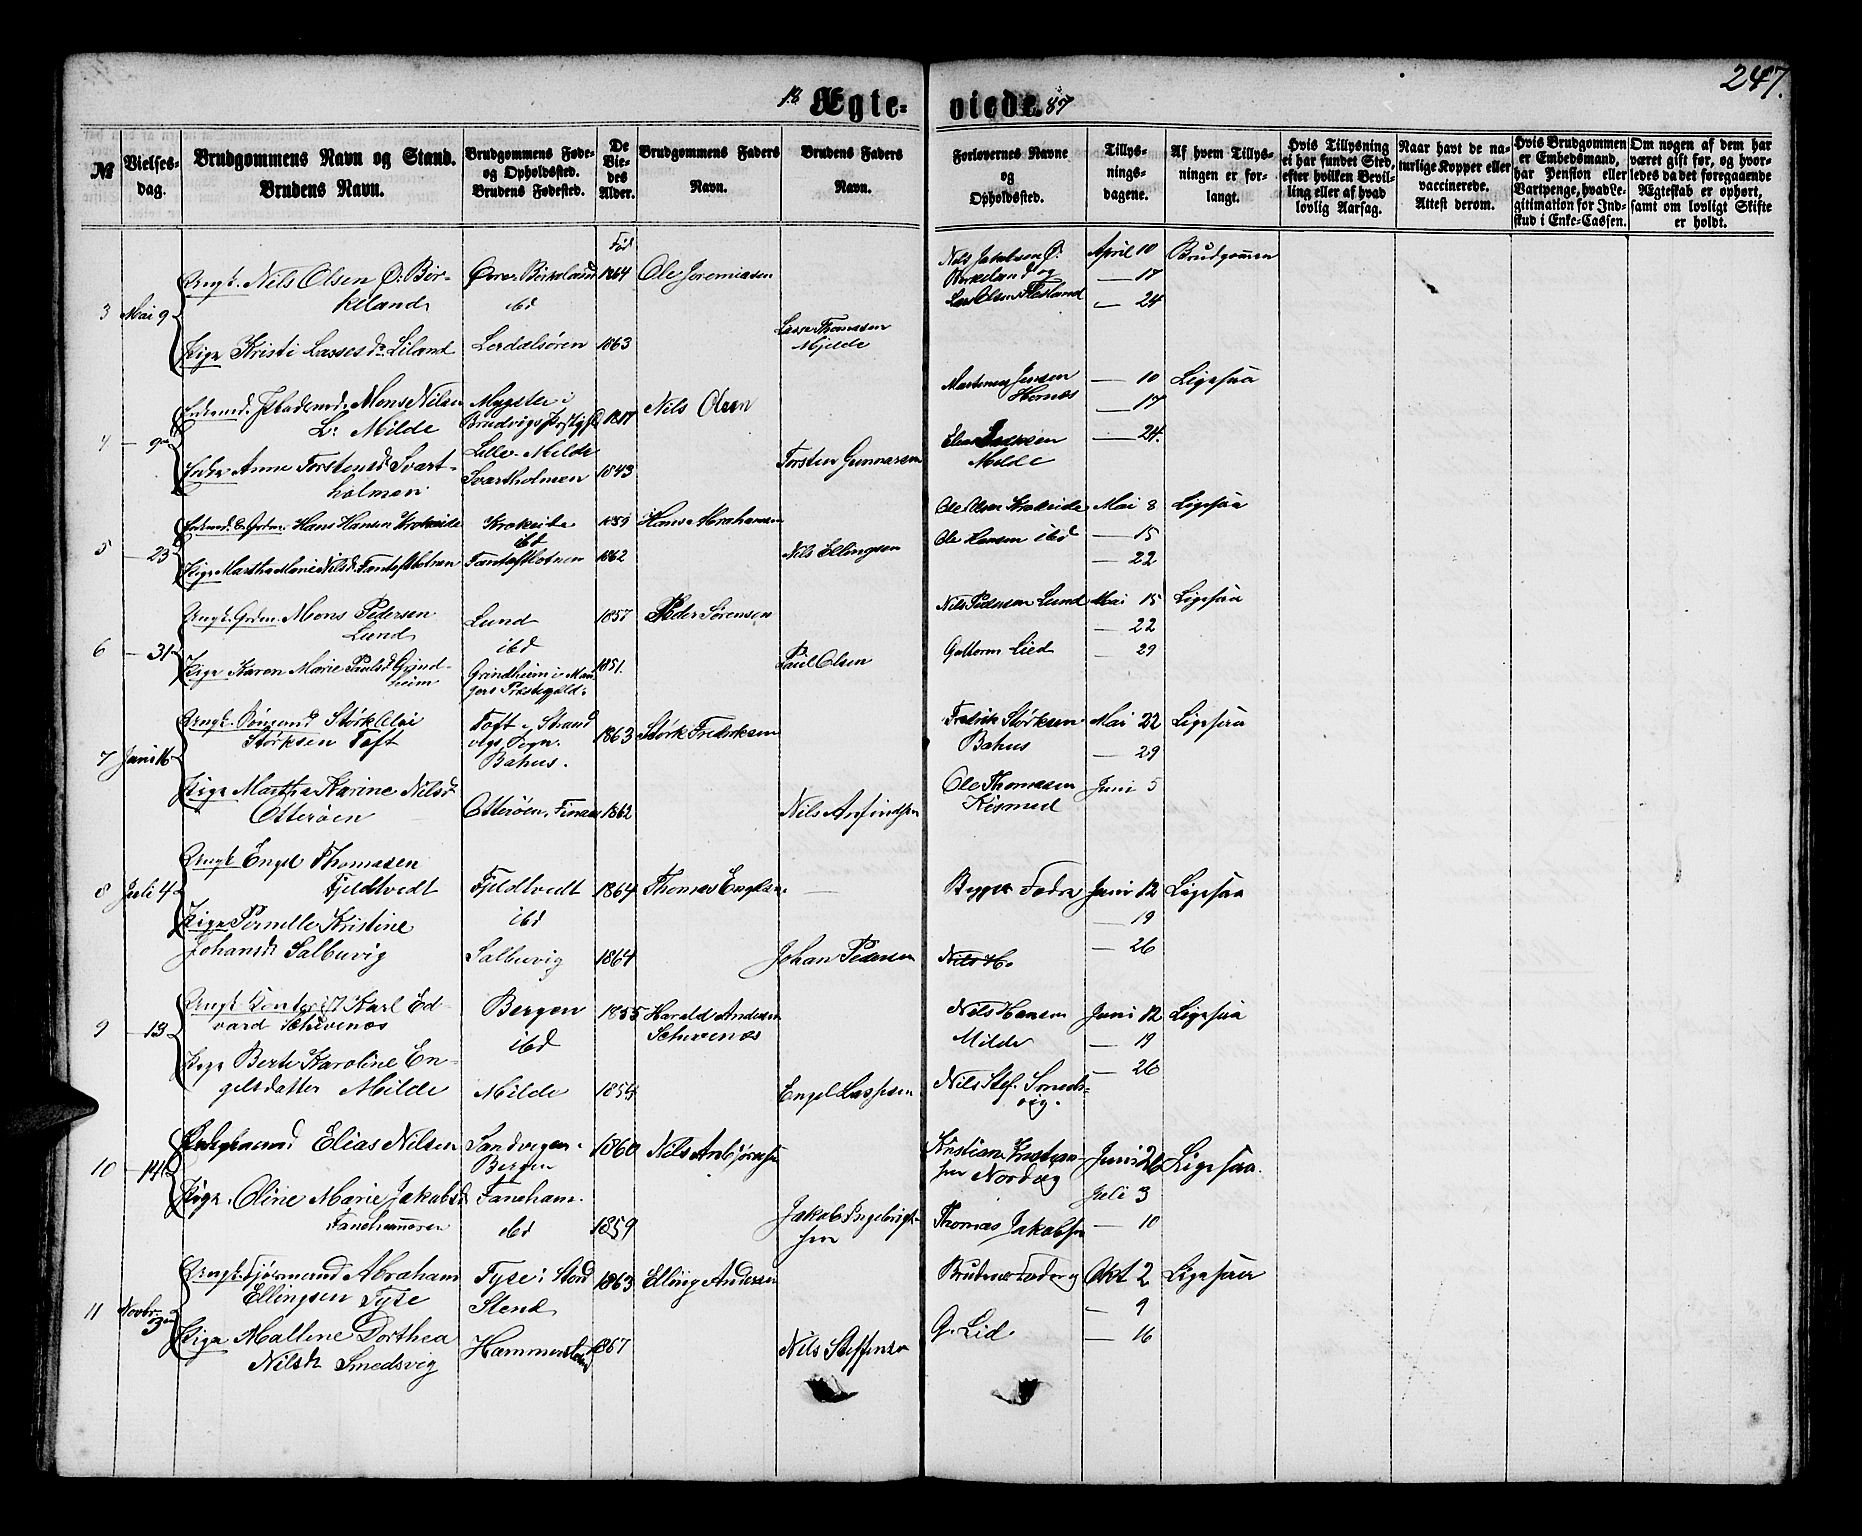 247.
18 Ægteviede. 87
№
Vielsesdag.
Brudgommens Navn og Stand.
Brudens Navn.
Brudgommens Føde- og Opholdssted.
Brudens Fødested.
De Viedes Alder.
Brudgommens Faders Navn.
Brudens Faders Navn.
Forlovernes Navne og Opholdssted.
Tillysningsdagene.
Af hvem Tillysningen er forlangt.
Hvis Tillysning ei har fundet Sted, efter hvilken Bevilling eller af hvad lovlig Aarsag.
Naar havt de naturlige Kopper eller vaccinerede. Attest derom.
Hvis Brudgommen er Embedsmand, har Pension eller Vartpenge, hvad Legitimation for Indskud i Enke-Cassen.
Om nogen af dem har været gift før, og hvorledes da det foregaaende Ægteskab er ophørt, samt om lovligt Skifte er holdt.
3 Mai 9
Ungk. Nils Olsen Ø. Birkeland
Øvre Birkeland ibd
Fød 1864
Ole Jeremiasen
Pige Kristi Lassesdr. Liland
Lerdalsören
1863
Lasse Thomasen Mjelde
Nils Jakobsen Ø. Birkeland og
Lars Olsen Flesland
April 10
— 17
— 24
Brudgommen
4 — 9
Enkemd. Mons Nilsen L. Milde
Lille Milde
Nils Olsen
Enke Anne Torstensd. Svartholmen
Svartholmen
1843
Torsten Gunnarsen
Mortens Jensen Hornes
Milde
— 10
— 17
— 24.
Ligesaa
5 — 23
Enkemd. Hans Hansen Krokeide
Krokeide ibd
Hans Abrahamsen
Pige Martha Marie Nilsd. Fantoftkotnen
Fantoftkotnen
1862
Nils Ellingsen
Ole Olsen Krokeide
Ole Hansen ibd
Mai 8
— 15
— 22
Ligesaa
6 — 31
Ungk. Grdm. Mons Pedersen Lund
Lund ibd
1857
Peder Sørensen
Pige Karen Marie Paulsd. Grindheim
Grindheim i Mangers Præstegjeld.
1851.
Paul Olsen
Nils Pedersen Lund
Guttorm Lied
Mai 15
— 22
— 29
Ligesaa
7 Juni 16
Ungk. Størk Olai Størksen Toft
Toft i Strandvigs Sogn. Bahus.
1863
Størk Fredriksen
Pige Martha Karine Nilsd. Otterøen
Otterøen, Finaas
1862
Nils Anfindsen
Fredrik Størksen Bahus
Ole Thomasen
Mai 22
— 29
Juni 5
Ligesaa
8 Juli 4
Ungk. Engel Thomasen Fjeldtvedt
Fjeldtvedt ibd
1864
Thomas Engelsen
Pige Pernille Kristine Johansdr. Salbuvig
Salbuvig
1864
Johan Pedersen
Begges Fædre
Nils H.
Juni 12
— 19
— 26
Ligesaa
9 — 13
Ungk. Karl Edvard Schevenæs
Bergen ibd
1855
Harald Andersen Schevenæs
Pige Berte Karoline Engelsdatter Milde
Milde
Engel Lassesen
Nils Hansen Milde
Nils Stef. Smedsvig.
Juni 12
— 19
— 26
Ligesaa
10 — 14
Elias Nilsen
Sandvigen, Bergen
1860
Nils Arnbjørnsen
Pige. Oline Marie Jakobsd. Fanehammeren
Faneham. ibd
1859
Jakob Ingebrigtsen
Kristian Kristiansen Nordvig
Thomas Jakobsen
Juni 26
Juli 3
— 10
Ligesaa.
11 Novbr. 3
Ungk. Abraham Ellingsen Tyse
Tyse i Stord
Stend
1863
Elling Andersen
Pige Malline Dorthea Nilsdr. Smedsvig
1867
Nils Steffensen
Brudens Fader og
G. Lid.
Okt 2
— 9
— 16
Ligesaa